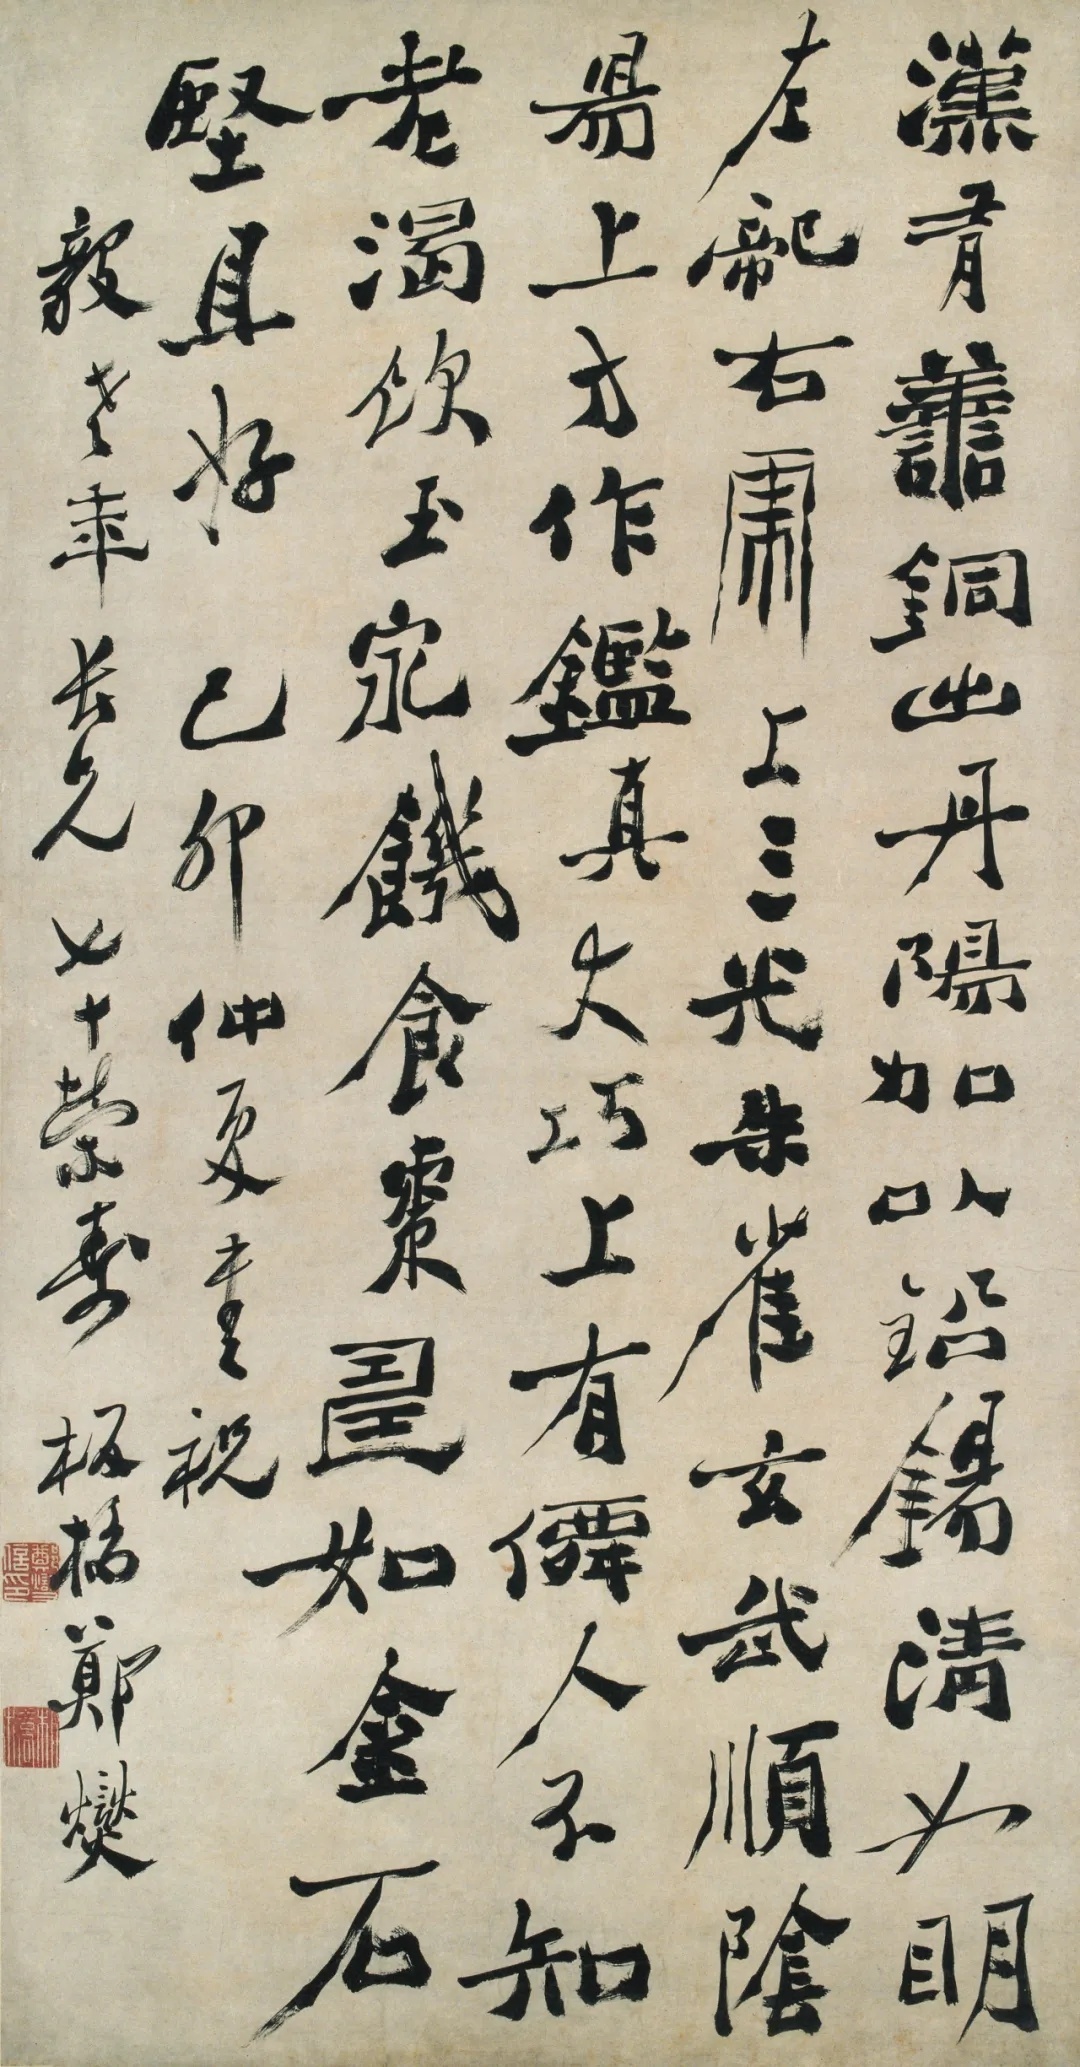 漢有譱銅出丹陽加以鉛錫清如明
左龍右虎上三光朱雀玄武順陰
昜上方作鑑真大巧上有僊人不知
老渴飲玉泉饑食棗壽如金石
堅且好 己卯仲夏書祝
毅老年長兄七十榮壽 板橋鄭燮
鄭燮信印